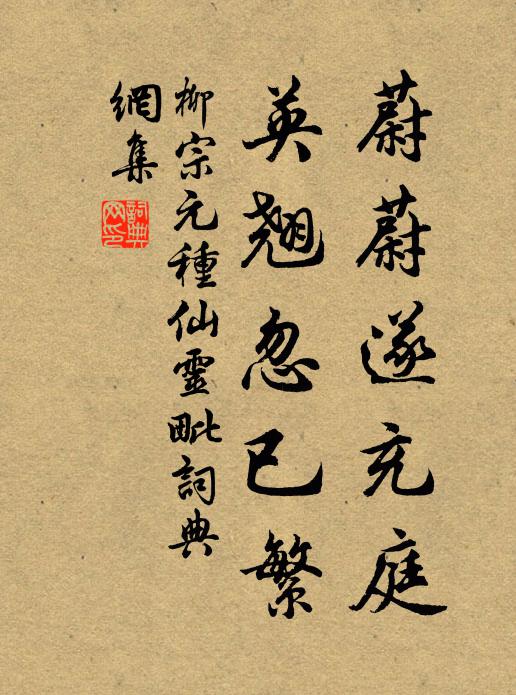 蔚蔚遂充庭
英翹忽已繁
柳宗元種仙靈毗詞典
網集
詞典
网印